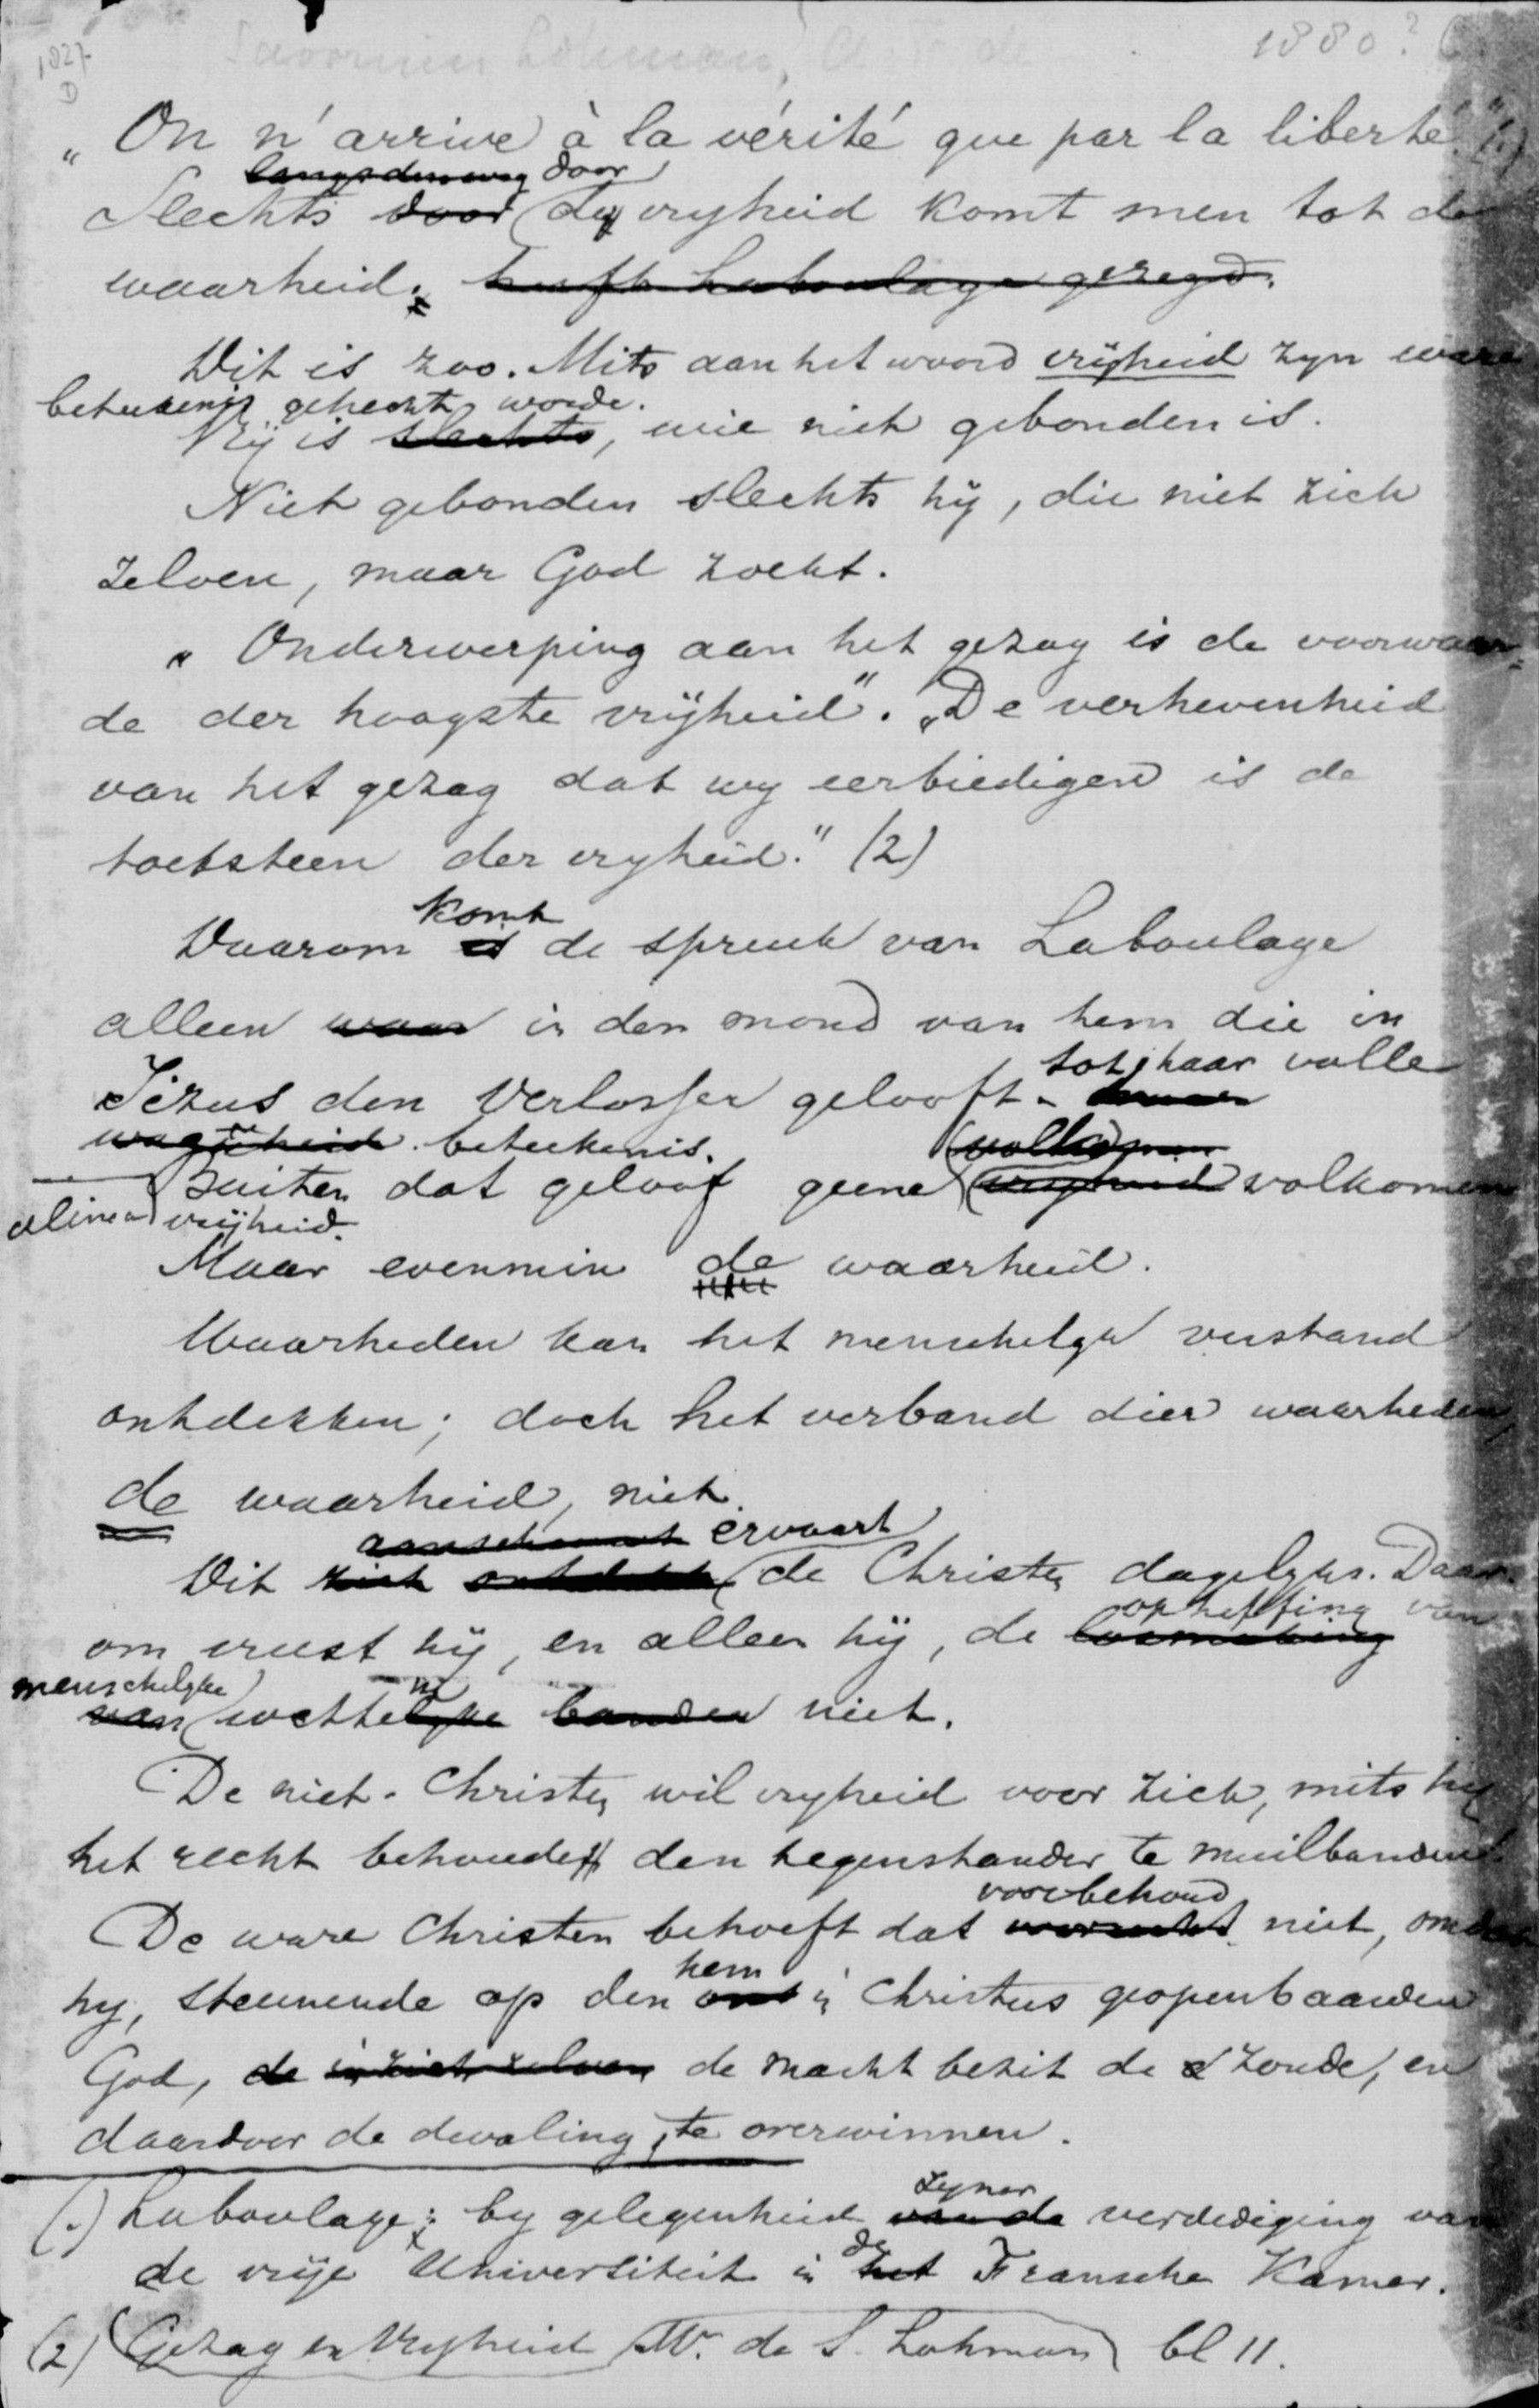 1827
D
Savornin Lohman, A. F. de
1880?
„On n'arrive à la vérité que par la liberté." (1)
langs den weg door
Slechts door de vryheid komt men tot de
waarheid. heeft Laboulaye gezegd.
Dit is zoo. Mits aan het woord vrijheid zyn ware
beteekenis gehecht worde.
Vrij is slechts, wie niet gebonden is.
Niet gebonden slechts hij, die niet zich
zelven, maar God zoekt.
„Onderwerping aan het gezag is de voorwaar-
de der hoogste vrijheid". „De verhevenheid
van het gezag dat wy eerbiedigen is de
toetsteen der vryheid." (2)
komt
Daarom is de spreuk van Laboulaye
alleen waar in den mond van hem die in
tot haar volle
Jezus den Verlosser gelooft.
beteekenis.
Buiten dat geloof geene vryheid volkomen
alinea vrijheid.
Maar evenmin de waarheid.
Waarheden kan het menschelyk verstand
ontdekken; doch het verband dier waarheden,
de waarheid, niet.
aanschouwt ervaart
Dit niet ontdekt de Christen dagelyks. Daar-
opheffing van
om vreest hij, en alleen hij, de losmaking
menschelyke
van wettelyke banden niet.
De niet-Christen wil vryheid voor zich, mits hij
het recht behoude den tegenstander te muilbanden.
voorbehoud
De ware Christen behoeft dat niet, omdat
hem
hy, steunende op den ons in Christus geopenbaarden
God, de in zich zelven de macht bezit de zonde, en
daardoor de dwaling, te overwinnen.
zyner
(1) Laboulaye; by gelegenheid van de verdediging van
de
de vrije Universiteit in het Fransche Kamer.
(2) Gezag en Vryheid Mr. de S. Lohman bl 11.